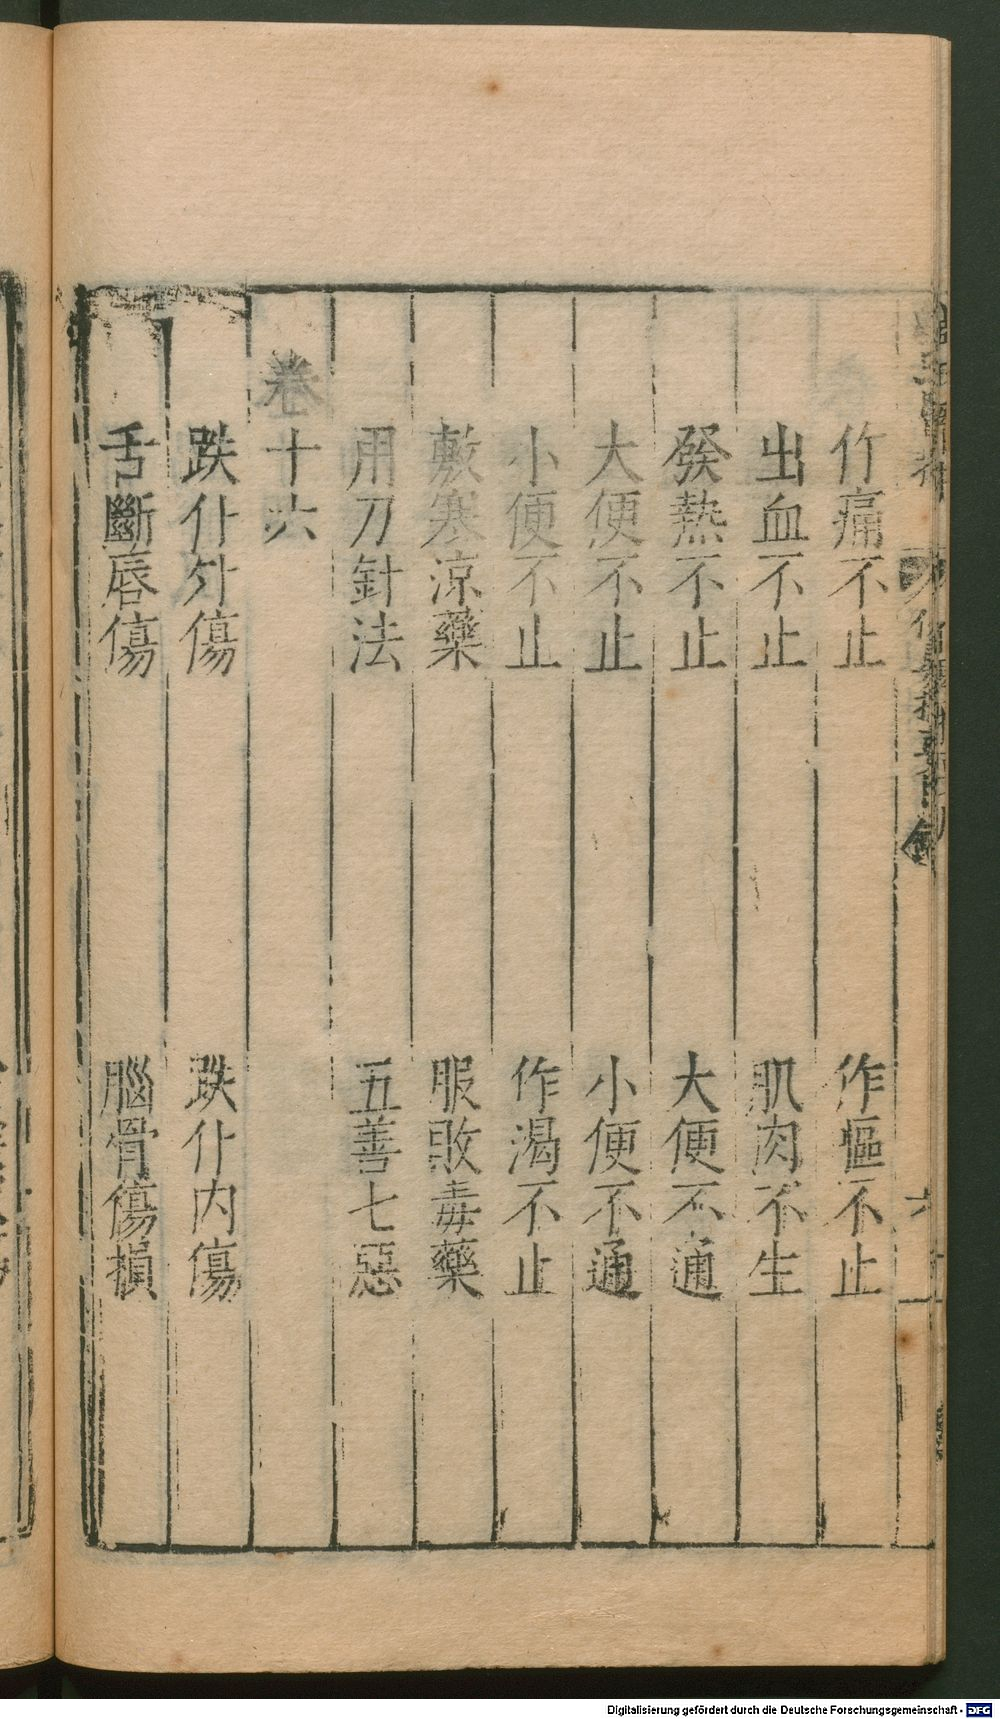 竹痛不止 作嘔不止
出血不止 肌肉不生
發熱不止 大便不通
大便不止 小便不通
小便不止 作渴不止
敷寒涼藥 服敗毒藥
用刀針法 五善七惡
卷十六
跌仆外傷 跌仆内傷
舌斷唇傷 腦骨傷損
Digitalisierung gefördert durch die Deutsche Forschungsgemeinschaft - DFG